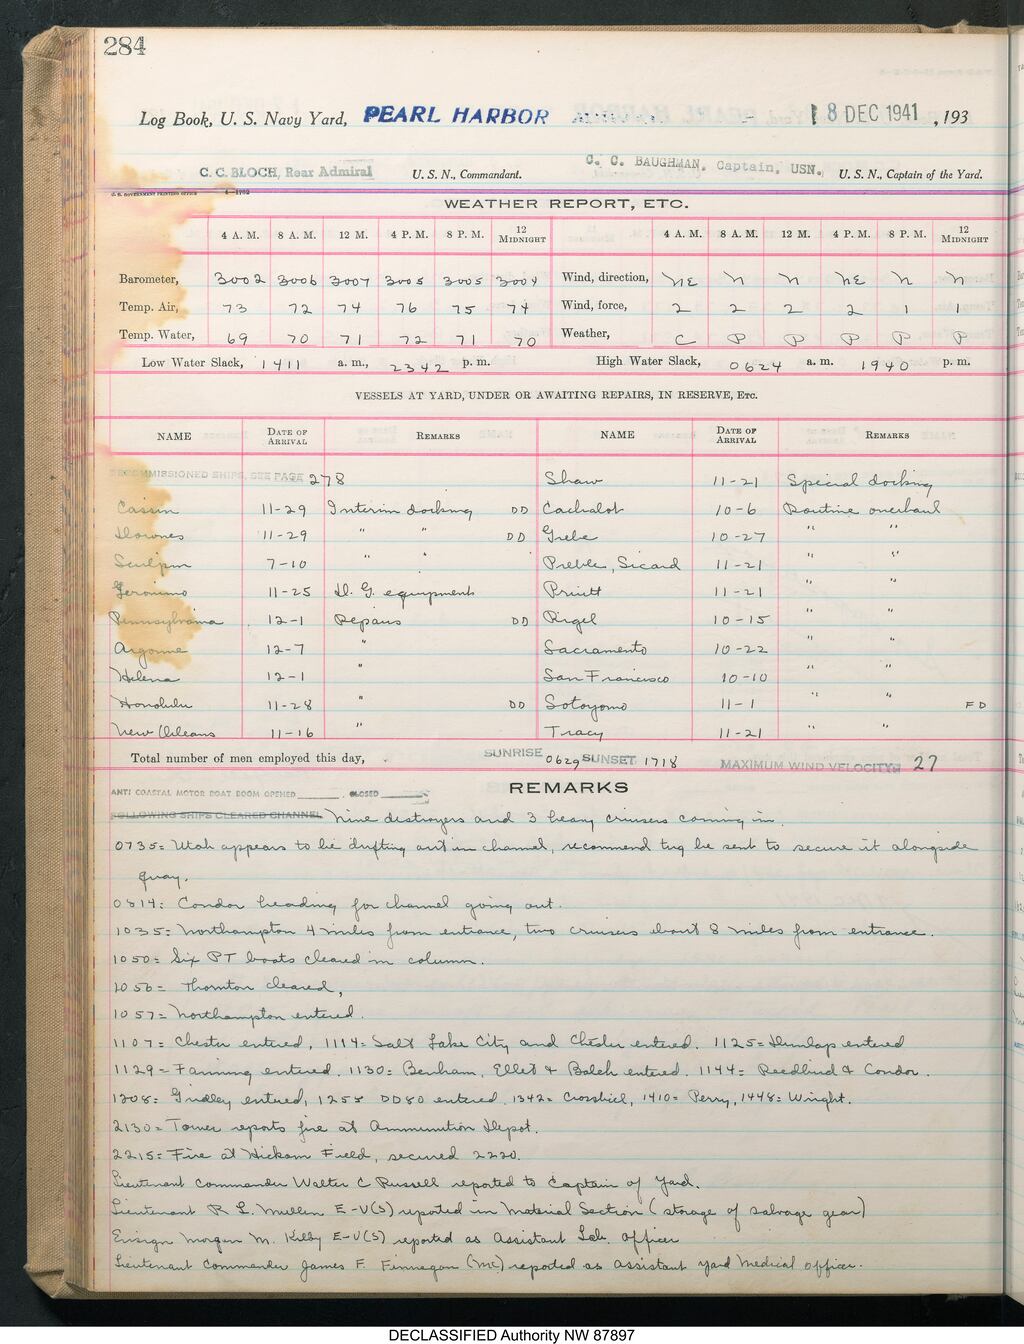 284
Log Book, U. S. Navy Yard, PEARL HARBOR 8 DEC 1941, 193
C. C. BLOCH, Rear Admiral U. S. N., Commandant. C. C. BAUGHMAN, Captain, USN., U. S. N., Captain of the Yard.
U. S. GOVERNMENT PRINTING OFFICE
WEATHER REPORT, ETC.
4 A. M. 8 A. M. 12 M. 4 P. M. 8 P. M. 12 MIDNIGHT 4 A. M. 8 A. M. 12 M. 4 P. M. 8 P. M. 12 MIDNIGHT
Barometer, 3002 3006 3007 3005 3005 3004 Wind, direction, NE N N NE N N
Temp. Air, 73 72 74 76 75 74 Wind, force, 2 2 2 2 1 1
Temp. Water, 69 70 71 72 71 70 Weather, C P P P P P
Low Water Slack, 1411 a. m., 2342 p. m. High Water Slack, 0624 a. m. 1940 p. m.
VESSELS AT YARD, UNDER OR AWAITING REPAIRS, IN RESERVE, ETC.
NAME DATE OF ARRIVAL REMARKS NAME DATE OF ARRIVAL REMARKS
DECOMMISSIONED SHIPS, SEE PAGE 278 Shaw 11-21 Special docking
Cassin 11-29 Interim docking DD Cachalot 10-6 Routine overhaul
Downes 11-29 " " DD Grebe 10-27 " "
Sculpin 7-10 " " Preble, Sicard 11-21 " "
Geronimo 11-25 D. G. equipment Pruitt 11-21 " "
Pennsylvania 12-1 Repairs DD Rigel 10-15 " "
Argonne 12-7 " Sacramento 10-22 " "
Helena 12-1 " San Francisco 10-10 " "
Honolulu 11-28 " DD Sotoyomo 11-1 " " FD
New Orleans 11-16 " Tracy 11-21 " "
Total number of men employed this day, SUNRISE 0629 SUNSET 1718 MAXIMUM WIND VELOCITY 27
REMARKS
ANTI COASTAL MOTOR BOAT BOOM OPENED CLOSED
FOLLOWING SHIPS CLEARED CHANNEL Nine destroyers and 3 heavy cruisers coming in.
0735= Utah appears to be drifting out in channel, recommend tug be sent to secure it alongside
quay.
0814: Condor heading for channel going out.
1035= Northampton 4 miles from entrance, two cruisers about 8 miles from entrance.
1050= Six PT boats cleared in column.
1056= Thornton cleared,
1057= Northampton entered.
1107= Chester entered, 1114= Salt Lake City and Chester entered. 1125= Dunlap entered
1129= Fanning entered. 1130= Benham, Ellet & Balch entered. 1144= Reedbird & Condor.
1208= Gridley entered, 1258 DD80 entered. 1342= Crossbill, 1410= Perry, 1448= Wright.
2130= Tower reports fire at Ammunition Depot.
2215= Fire at Hickam Field, secured 2220.
Lieutenant Commander Walter C Russell reported to Captain of Yard.
Lieutenant R L. Mullen E-V(S) reported in Material Section (storage of salvage gear)
Ensign Morgan M. Kilby E-V(S) reported as Assistant Lab. Officer
Lieutenant Commander James F. Finnegan (MC) reported as assistant yard Medical officer.
DECLASSIFIED Authority NW 87897